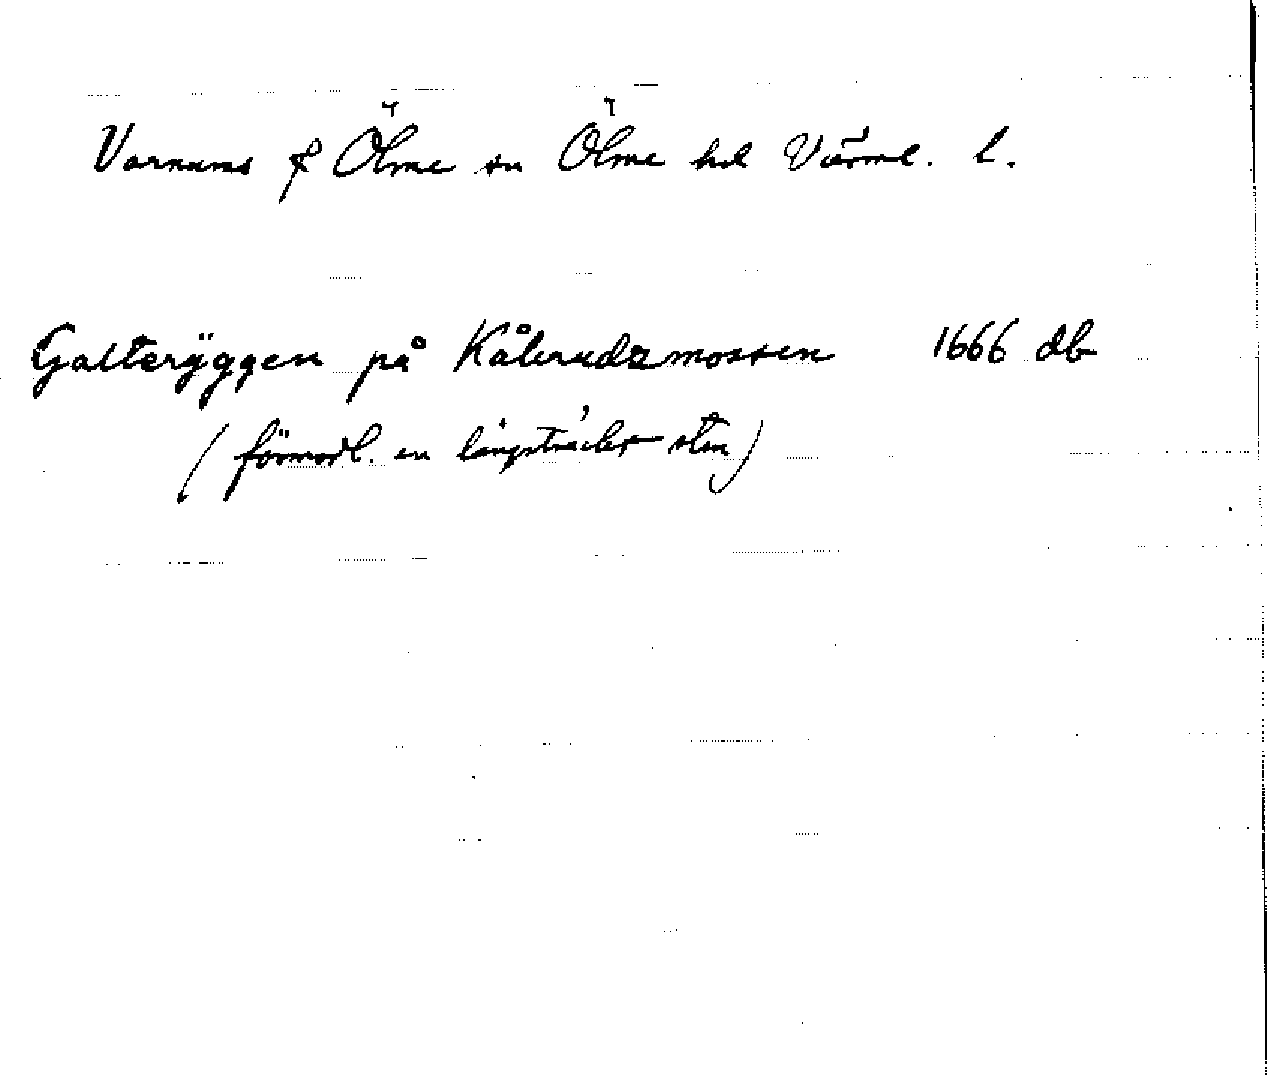 Varnums f Ölme sn Ölme hd Värml. l.
Galterÿggen på Kålerudzmossen 1666 db
(förmodl. en långsträckt sten)